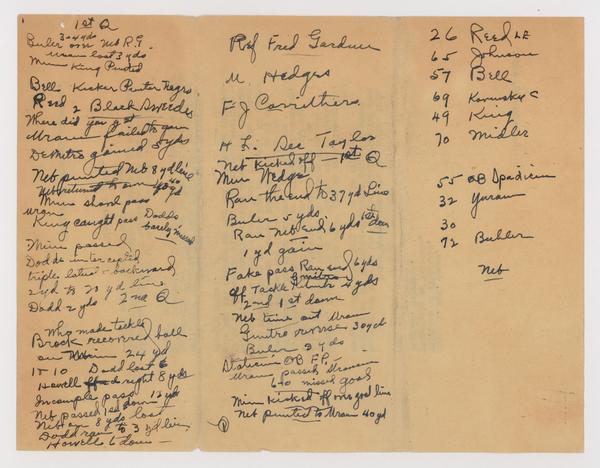 1st Q
3-4 yds
Buler over Neb R.G.
lost 3 yds
Minn King Punted
Bell Kicker Punter Negro
Reed 2 Black Swedes
Where did you get
Uram failed to gain
DeMetro gained 5 yds
Neb punted Neb 8 yd line
Neb returned to own 40 yd
Minn short pass
Uram
King caught pass Dodds
barely missed
Minn passed
Dodds intercepted
triple lateral - backward
2 yd to 20 yd line
Dodd 2 yds 2nd Q.
Who made tackle
Brock recovered ball
on Minn 24 yd
1st 10 Dodd lost 6
Howell right 8 yds
Incomple pass
Neb passed 1st down 12 yd
Neb on 8 yds lost
Dodd ran to 3 yd line
Howell 6 down -
Ref Fred Gardner
U. Hedges
F J Carrithers
H L. Dec Taylor
Neb Kicked off - 1st Q
Minn Wedge
Ran the end to 37 yd Line
Buler 5 yds
Ran Neb End 6 yds 1st down
1 yd gain
Fake pass Ran end 6 yds
off Tackle Gmitro 4 yds
2nd 1st down
Neb time out Uram
Gmitro reverse 30 yd
Buler 3 yds
QB F.P. -
Uram passed
6-0 missed goal
Minn Kicked off over goal line
Neb punted to Uram 40 yd
26 Reed LE
65 Johnson
57 Bell
69 C
49 King
70 Midler
55 QB
32 Uram
30
72 Buhler
Neb